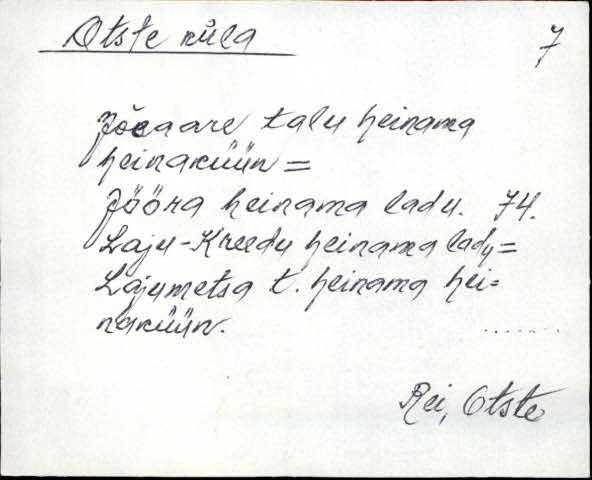 Otste küla
7
Jõeaare talu heinama
heinaküün =
Jööra heinama ladu. 74.
Laju-Kreedu heinama ladu =
Lajumetsa t. heinama hei-
naküün.
Rei, Otste